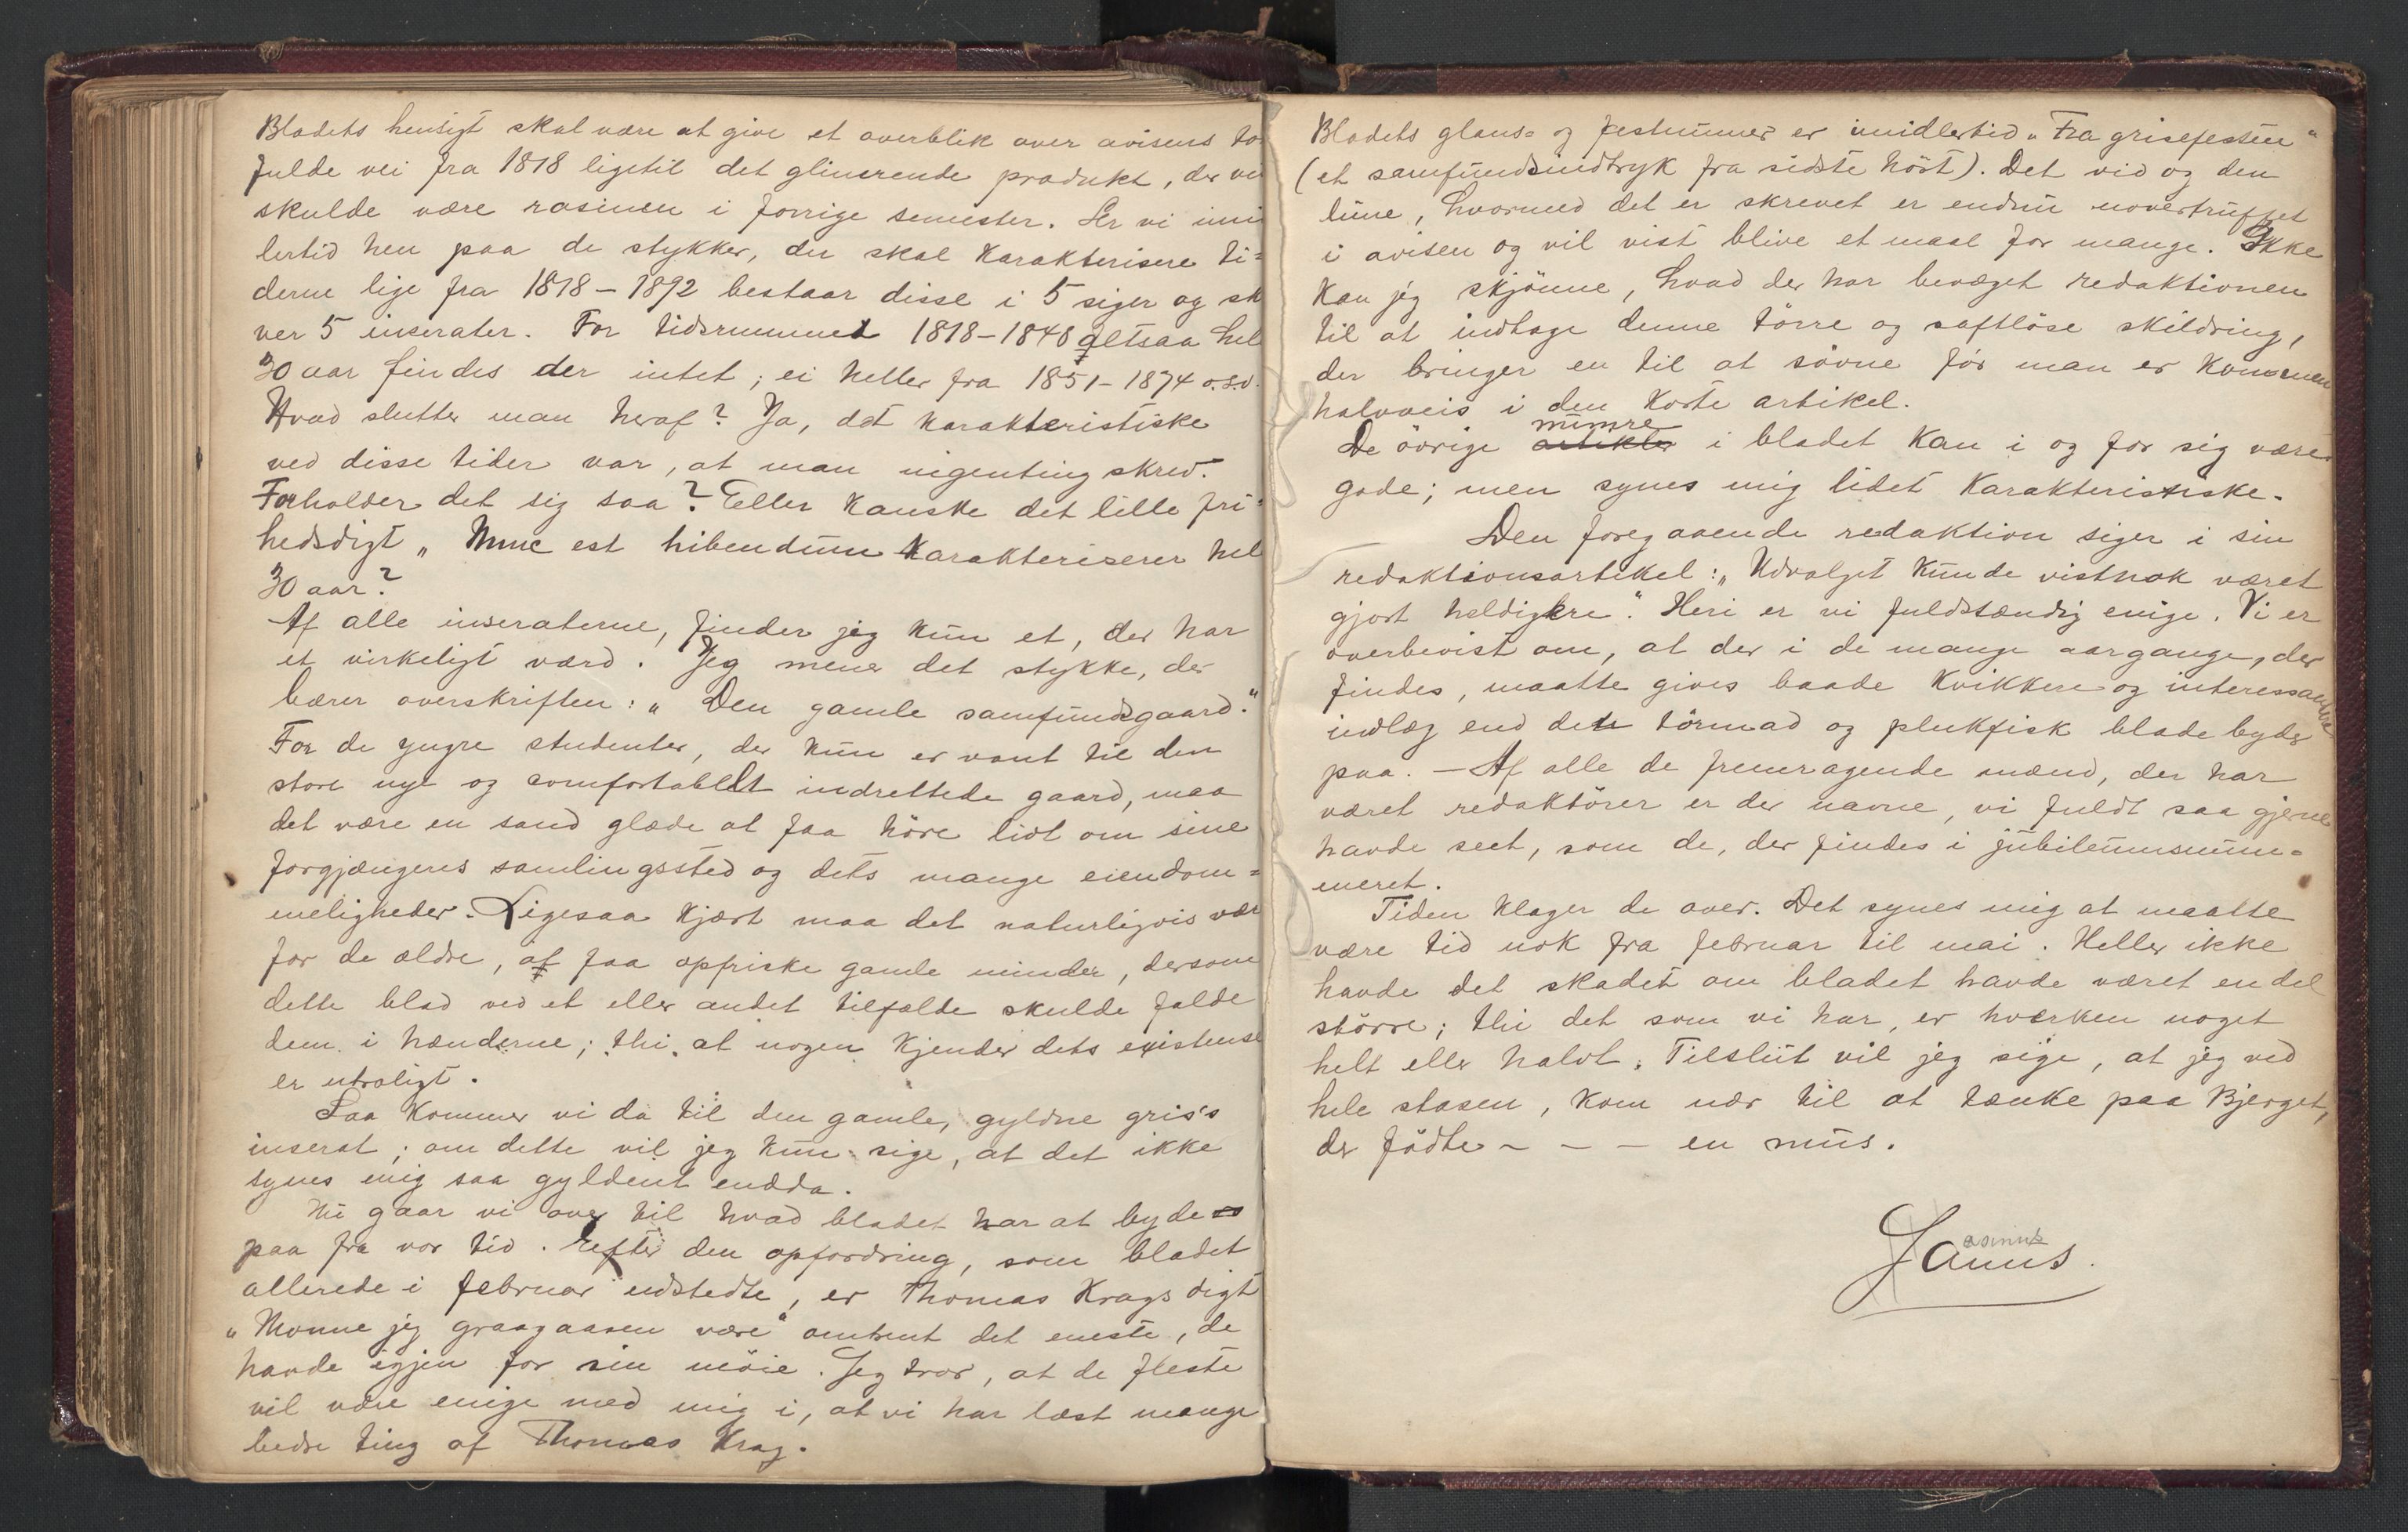 Bladets hensigt skal være at give et overblik over avisens to
fulde vei fra 1818 ligetil det glimrende produkt, der vi
skulde være rosinen i forrige semester. Ser vi imi
lertid hen paa de stykker, der skal karakterisere ti=
derne lige fra 1818 – 1892 bestaar disse i 5 siger og sk
ver 5 inserater. For tidsrummet 1818–1848 altsaa hel
30 aar findes der intet; ei heller fra 1851–1874 o.s.v.
Hvad slutter man heraf? Ja, det karakteristiske
ved disse tider var, at man ingenting skrev.
Forholder det sig saa? Eller kanske det lille fri=
hedsdigt „Nunc est bibendum karakteriserer hel
30 aar?
Af alle inseraterne, finder jeg kun et, der har
et virkeligt værd. Jeg mener det stykke, der
bærer overskriften: „Den gamle samfundsgaard."
For de yngre studenter, der kun er vant til den
store nye og comfortabelt indrettede gaard, maa
det være en sand glæde at faa höre lidt om sine
forgjængeres samlingssted og dets mange eiendom=
meligheder. Ligesaa kjært maa det naturligvis vær
for de ældre, at faa opfriske gamle minder, dersom
dette blad ved et eller andet tilfælde skulde falde
dem i hænderne; thi at nogen kjender dets existense
er utroligt.
Saa kommer vi da til den gamle, gyldne gris's
inserat; om dette vil jeg kun sige, at det ikke
synes mig saa gyldent endda.
Nu gaar vi over til hvad bladet har at byde
paa fra vor tid. Efter den opfordring, som bladet
allerede i februar udstedte, er Thomas Krags digt
„Monne jeg graagaasen være" omtrent det eneste, de
havde igjen for sin möie. Jeg tror, at de fleste
vil være enige med mig i, at vi har læst mange
bedre ting af Thomas Krag.
Bladets glans= og festnummer er imidlertid „Fra grisefesten"
(et samfundsindtryk fra sidste höst). Det vid og den
lune, hvormed det er skrevet er endnu uovertruffet
i avisen og vil vist blive et maal for mange. Ikke
kan jeg skjönne, hvad der har bevæget redaktionen
til at indtage denne törre og saftlöse skildring,
der bringer en til at sövne för man er kommen
halvveis i den korte artikel.
De övrige artikler i bladet kan i og for sig være
gode; men synes mig lidet karakteristiske.
Den foregaaende redaktion siger i sin
redaktionsartikel: „Udvalget kunde vistnok været
gjort heldigere". Heri er vi fuldstændig enige. Vi er
overbevist om, at der i de mange aargange, der
findes, maatte gives baade kvikkere og interessantere
indlæg end den törmad og plukfisk blade byder
paa. – Af alle de fremragende mænd, der har
været redaktörer er der navne, vi fuldt saa gjerne
havde seet, som de, der findes i jubilæumsnum=
meret.
Tiden klager de over. Det synes mig at maatte
være tid nok fra februar til mai. Heller ikke
havde det skadet om bladet havde været en del
större; thi det som vi har, er hverken noget
helt eller halvt. Tilslut vil jeg sige, at jeg ved
hele stasen, kom nær til at tænke paa Bjerget,
der födte – – – en mus.
Janus.